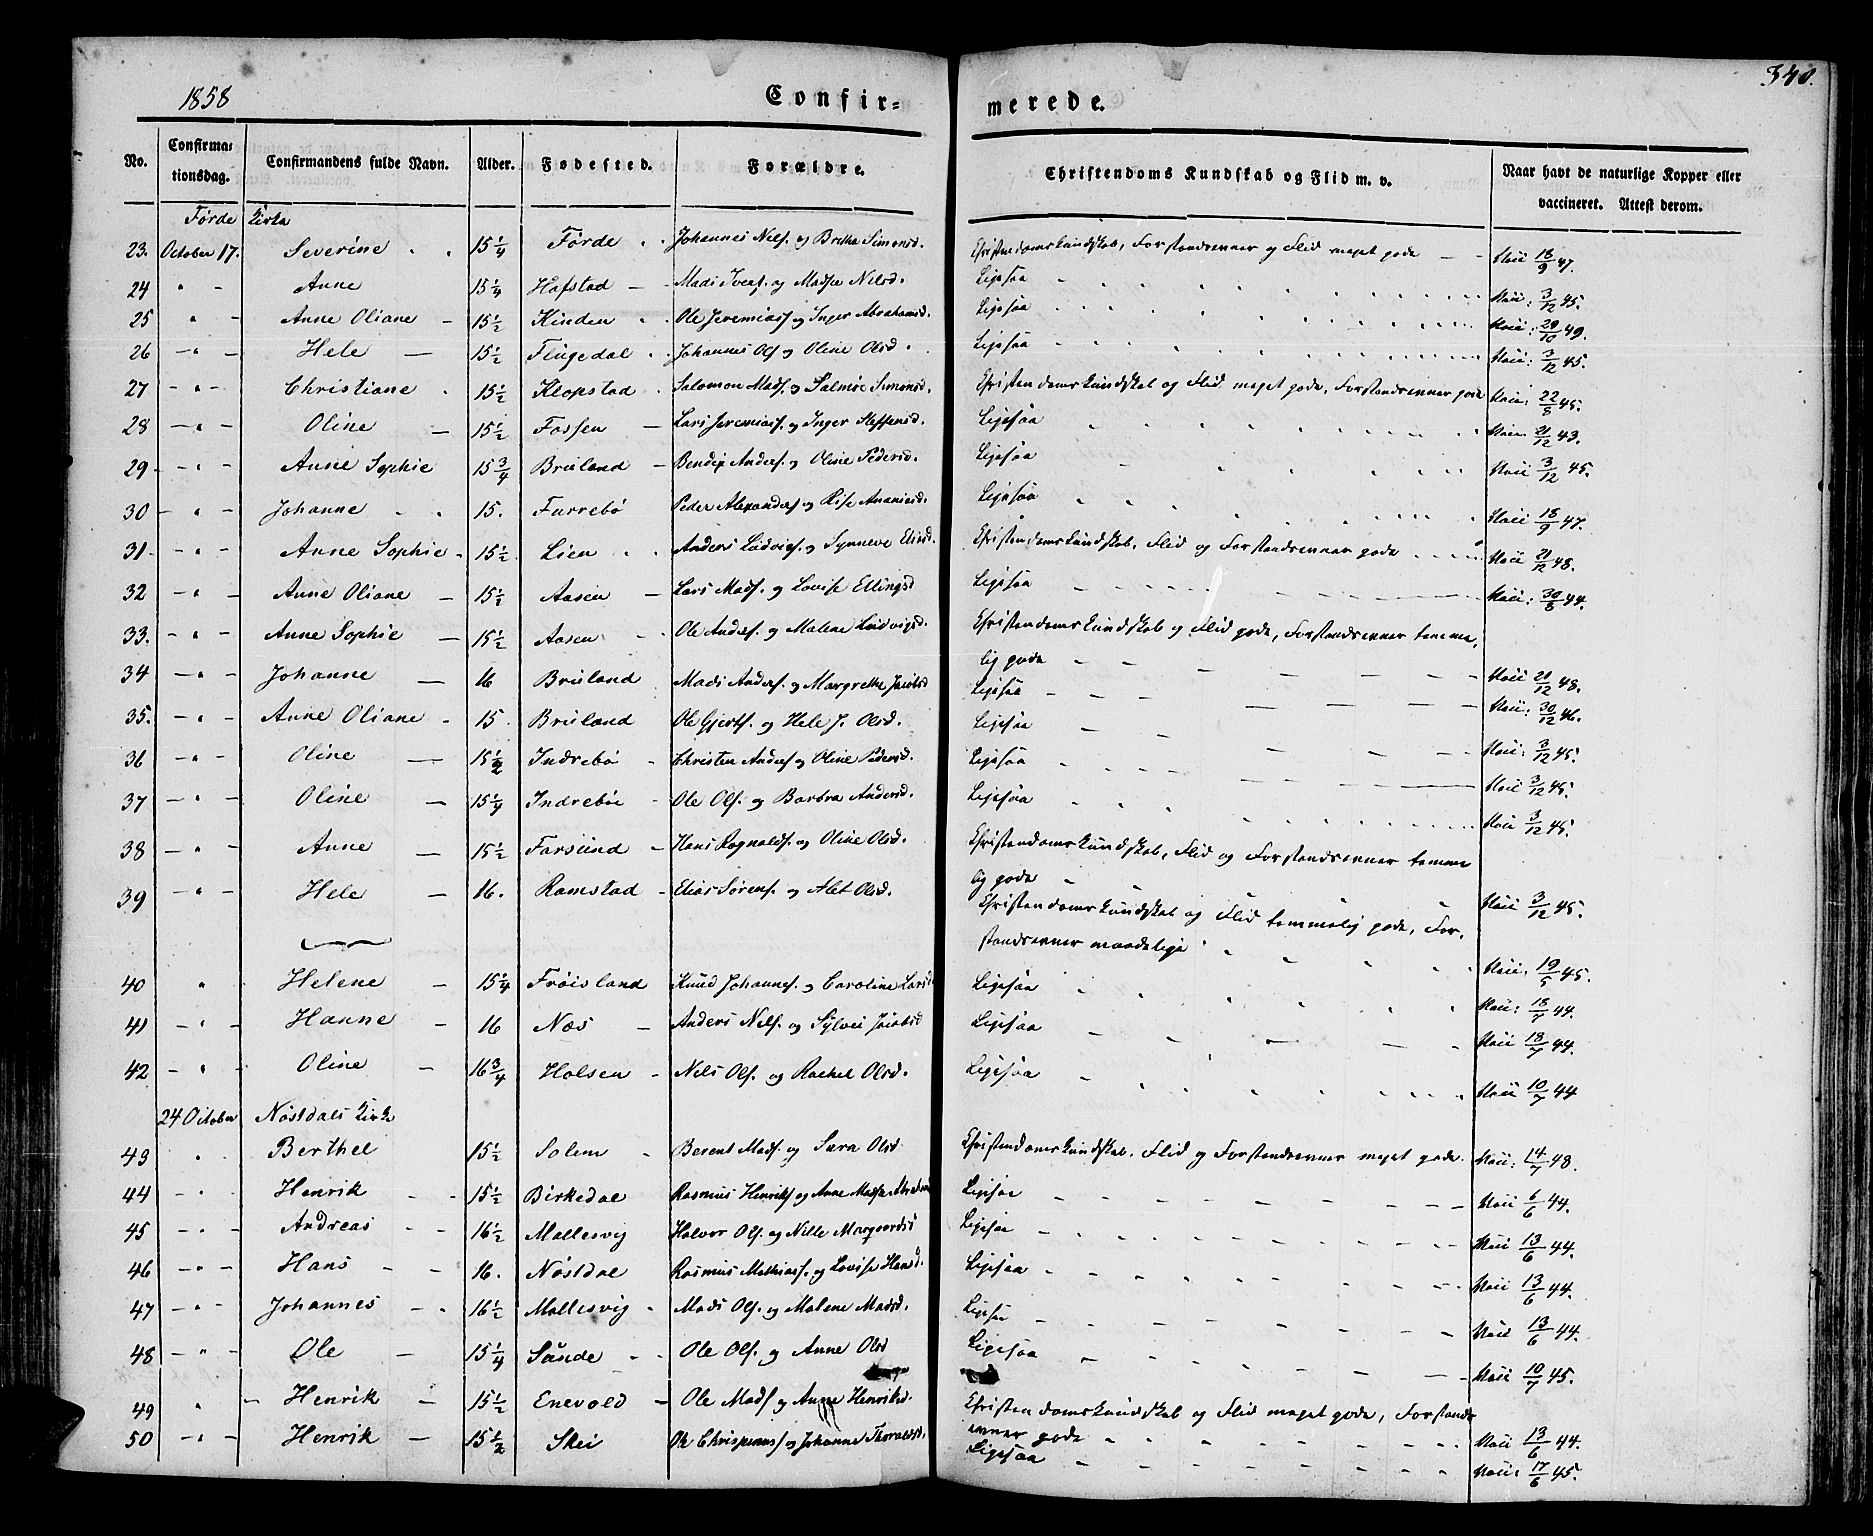 1858 Confirmerede. 340.
No. Confirmationsdag. Confirmandens fulde Navn. Alder. Fødested. Forældre. Christendoms Kundskab og Flid m. v. Naar havt de naturlige Kopper eller vaccineret. Attest derom.
Førde Kirke
23. October 17. Severine 15 1/4 Førde Johannes Nels. og Brithe Simonsd. Christendomskundskab, Forstandsevner og Flid meget gode 18/9 47.
24 " Anne 15 1/4 Hafstad Mads Ivers. og Madse Nilsd. Ligesaa 3/12 45.
25 " Anne Oliane 15 1/2 Kinden Ole Jeremiass. og Inger Abrahamsd. Ligesaa 29/10 49.
26 " Hele 15 1/2 Flugedal Johannes Ols. og Oline Olsd. Ligesaa 3/12 45.
27 " Christiane 15 1/2 Klopstad Salomon Mads. og Salmøe Simonsd. Christendomskundskab og Flid meget gode, Forstandsevner gode 22/8 45.
28 " Oline 15 1/2 Fossen Lars Jeremiass. og Inger Steffensd. Ligesaa 21/12 43.
29 " Anne Sophie 15 3/4 Bruland Bendix Anders. og Oline Pedersd. Ligesaa 3/12 45.
30 " Johanne 15. Furrebø Peder Alexanders. og Lise Ananiesd. Ligesaa 18/9 47.
31. " Anne Sophie 15 1/2 Lien Anders Ludvigs. og Synneve Eliesd. Christendomskundskab, Flid og Forstandsevner gode 21/12 48.
32 " Anne Oliane 15 1/2 Aasen Lars Mads. og Lovise Ellingsd Ligesaa 30/8 44.
33. " Anne Sophie 15 1/2 Aasen Ole Anders. og Malene Ludvigsd. Christendomskundskab og Flid gode, Forstandsevner temme,
lig gode 21/12 48.
34 " Johanne 16 Bruland Mads Anders. og Margrethe Jacobsd Ligesaa 30/12 46.
35. " Anne Oliane 15. Bruland Ole Gjerts. og Hele J. Olsd. Ligesaa 3/12 45.
36 " Oline 15 1/2 Indrebø Christen Anders. og Oline Pedersd. Ligesaa 3/12 45.
37 " Oline 15 1/4 Indrebøe Ole Ols. og Barbra Andersd. Ligesaa 3/12 45.
38 " Anne 15 1/2 Farsund Hans Rognalds. og Oline Olsd. Christendomskundskab, Flid og Forstandsevner temme
lig gode 3/12 45.
39 " Hele 16. Ramstad Elias Sørens. og Alet Olsd. Christendomskundskab og Flid temmelig gode, For,
standsevner maadelige 19/5 45.
40 " Helene 15 1/4 Frøisland Knud Johannes. og Caroline Larsd Ligesaa 18/7 44.
41 " Hanne 16 Næs Anders Nels. og Sylvei Jacobsd Ligesaa 18/7 44.
42 " Oline 16 3/4 Holsen Nils Ols. og Rachel Olsd. Ligesaa 10/7 44
24 October Nøstdals Kirke
43 " Berthel 15 1/2 Solem Berent Mads. og Sara Olsd Christendomskundskab, Flid og Forstandsevner meget gode. 14/7 48.
44 " Henrik 15 1/2 Birkedal Rasmus Henriks. og Anne Madse Ligesaa 6/6 44.
45 " Andreas 16 1/2 Mallesvig Halvor Ols. og Nille Ligesaa 13/6 44.
46 " Hans 16. Nøstdal Rasmus Mathiass. og Lovise Hansd. Ligesaa 13/6 44.
47 " Johannes 16 1/2 Mallesvig Mads Ols. og Malene Madsd. Ligesaa 13/6 44.
48 " Ole 15 1/4 Sande Ole Ols. og Anne Olsd Ligesaa 10/7 45.
49 " Henrik 15 1/2 Enevold Ole Mads. og Anne Henriksd. Christendomskundskab og Flid meget gode, Forstands
evner gode 13/6 44.
50 " Henrik 15 1/2 Skei Ole og Johanne Ligesaa 17/6 45.